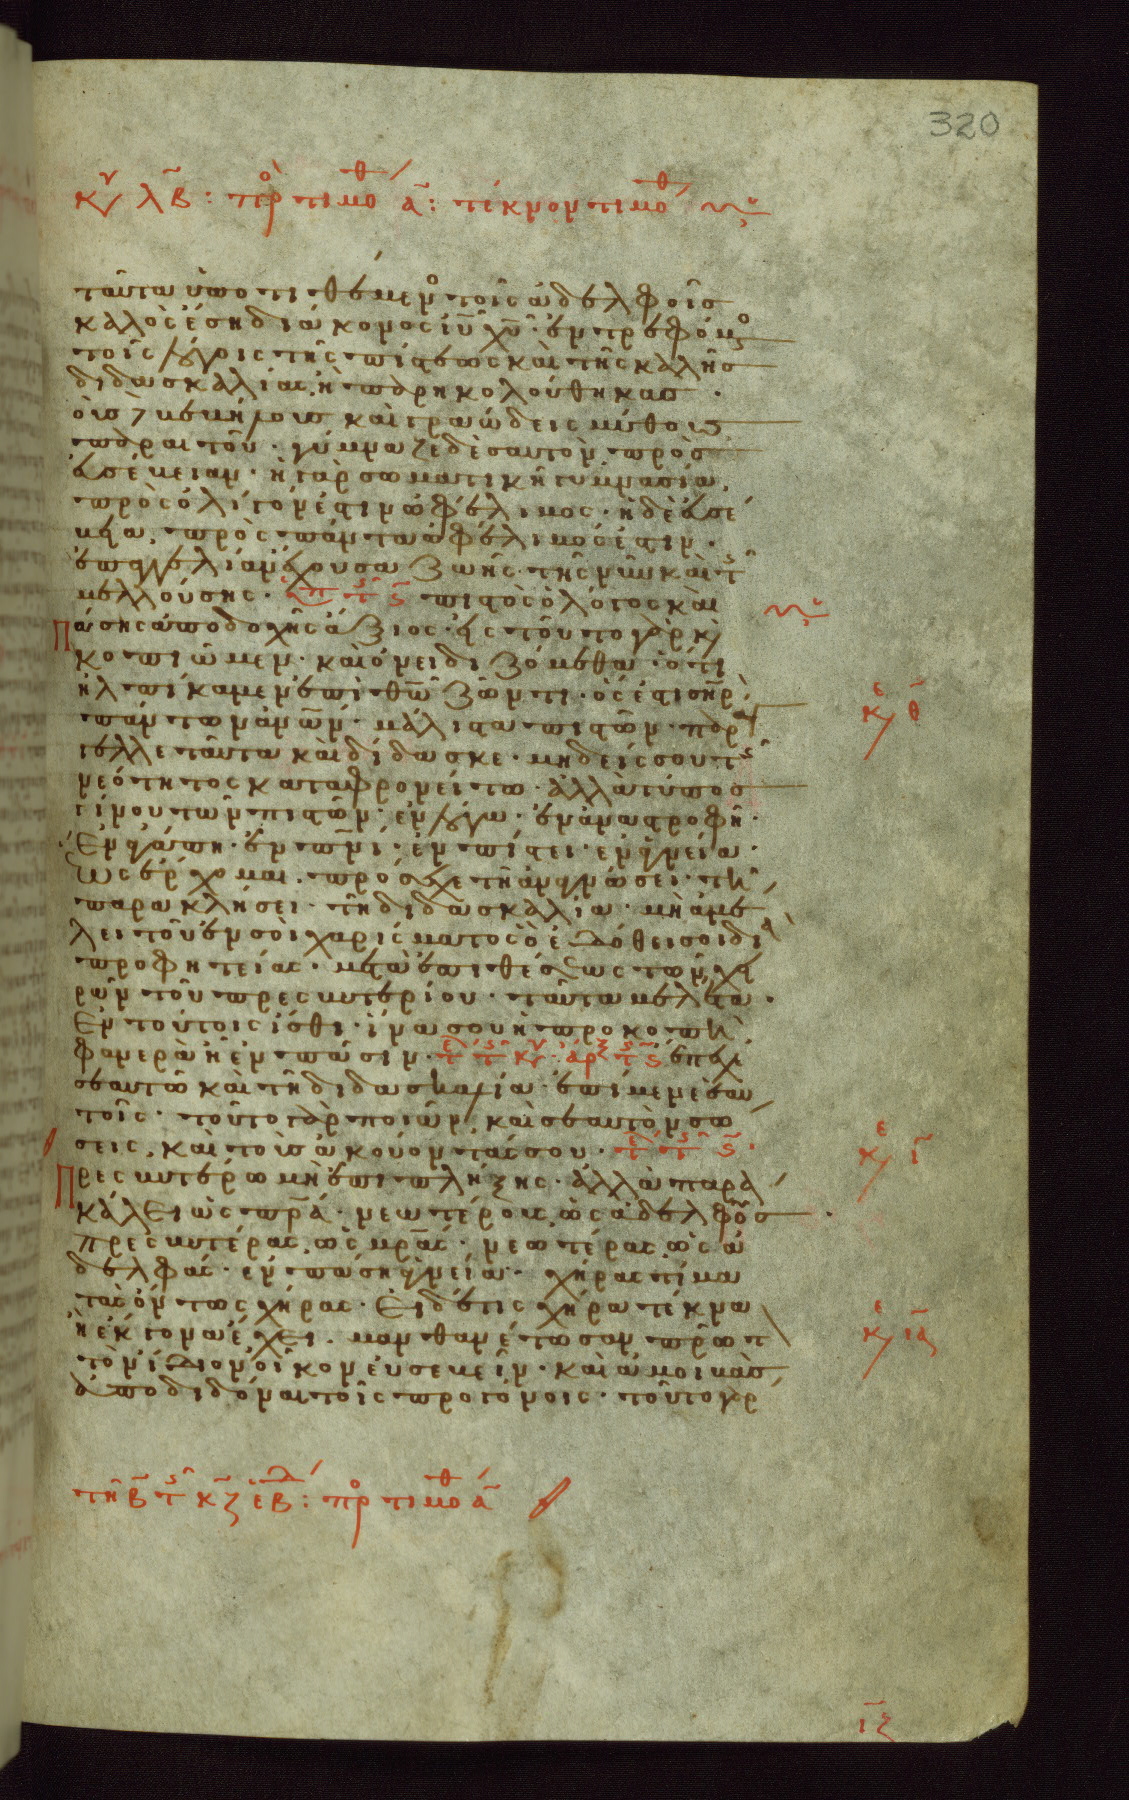 320
κυ λβ : πρ τιμοθ α : τέκνον τιμοθ
ταῦτα ὑποτιθέμενος τοῖς ἀδελφοῖς
καλὸς ἔση διάκονος ἰυ χυ · ἐντρεφόμενος
τοῖς λόγοις τῆς πίστεως καὶ τῆς καλῆς
διδασκαλίας, ἧ παρηκολούθηκας ·
τοὺς δὲ βεβήλους καὶ γραώδεις μύθους
παραιτοῦ · γύμναζε δὲ σαυτὸν πρὸς
εὐσέβειαν · ἡ γὰρ σωματικὴ γυμνασία,
πρὸς ὀλίγον ἐστὶν ὠφέλιμος · ἡ δὲ εὐσέ
βεια, πρὸς πάντα ὠφέλιμός ἐστιν ·
ἐπαγγελίαν ἔχουσα ζωῆς τῆς νῦν καὶ τῆς
μελλούσης · πιστὸς ὁ λόγος καὶ
πάσης ἀποδοχῆς ἄξιος · εἰς τοῦτο γὰρ καὶ
κοπιῶμεν · καὶ ὀνειδιζόμεθα · ὅτι
ἠλπίκαμεν ἐπὶ θῶ ζῶντι · ὅς ἐστι σηρ
πάντων ἀνῶν · μάλιστα πιστῶν · παράγ
γελλε ταῦτα καὶ δίδασκε · μηδείς σου τῆς
νεότητος καταφρονείτω · ἀλλὰ τύπος
γίνου τῶν πιστῶν · ἐν λόγω · ἐν ἀναστροφῆ ·
ἐν ἀγάπη · ἐν πνι · ἐν πίστει · ἐν ἁγνεία ·
ἕως ἔρχομαι · πρόσεχε τῆ ἀναγνώσει · τῆ
παρακλήσει · τῆ διδασκαλία · μὴ ἀμέ
λει τοῦ ἐν σοὶ χαρίσματος ὃ ἐδόθη σοι διὰ
προφητείας · μετὰ ἐπιθέσεως τῶν χει
ρῶν τοῦ πρεσβυτερίου · ταῦτα μελέτα ·
ἐν τούτοις ἴσθι · ἵνα σου ἡ προκοπὴ
φανερὰ ἦ ἐν πᾶσιν · ἔπεχε
σεαυτῶ καὶ τῆ διδασκαλία · ἐπίμενε αὐ
τοῖς · τοῦτο γὰρ ποιῶν, καὶ σεαυτὸν σώ
σεις, καὶ τοὺς ἀκούοντάς σου ·
Πρεσβυτέρω μὴ ἐπιπλήξης · ἀλλὰ παρα
κάλει ὡς πρα · νεωτέρους, ὡς ἀδελφούς ·
πρεσβυτέρας, ὡς μρας · νεωτέρας, ὡς ἀ
δελφάς · ἐν πάση ἁγνεία · χήρας τίμα
τὰς ὄντως χήρας · εἰ δέ τις χήρα τέκνα
ἢ ἔκγονα ἔχει · μανθανέτωσαν πρῶτ
τὸν ἴδιον οἶκον εὐσεβεῖν · καὶ ἀμοιβὰς
ἀποδιδόναι τοῖς προγόνοις · τοῦτο γάρ
κε θ
κε ι
κε ια
τῆ β τῆς κζ ἑβδ : πρ τιμοθ α
ιζ